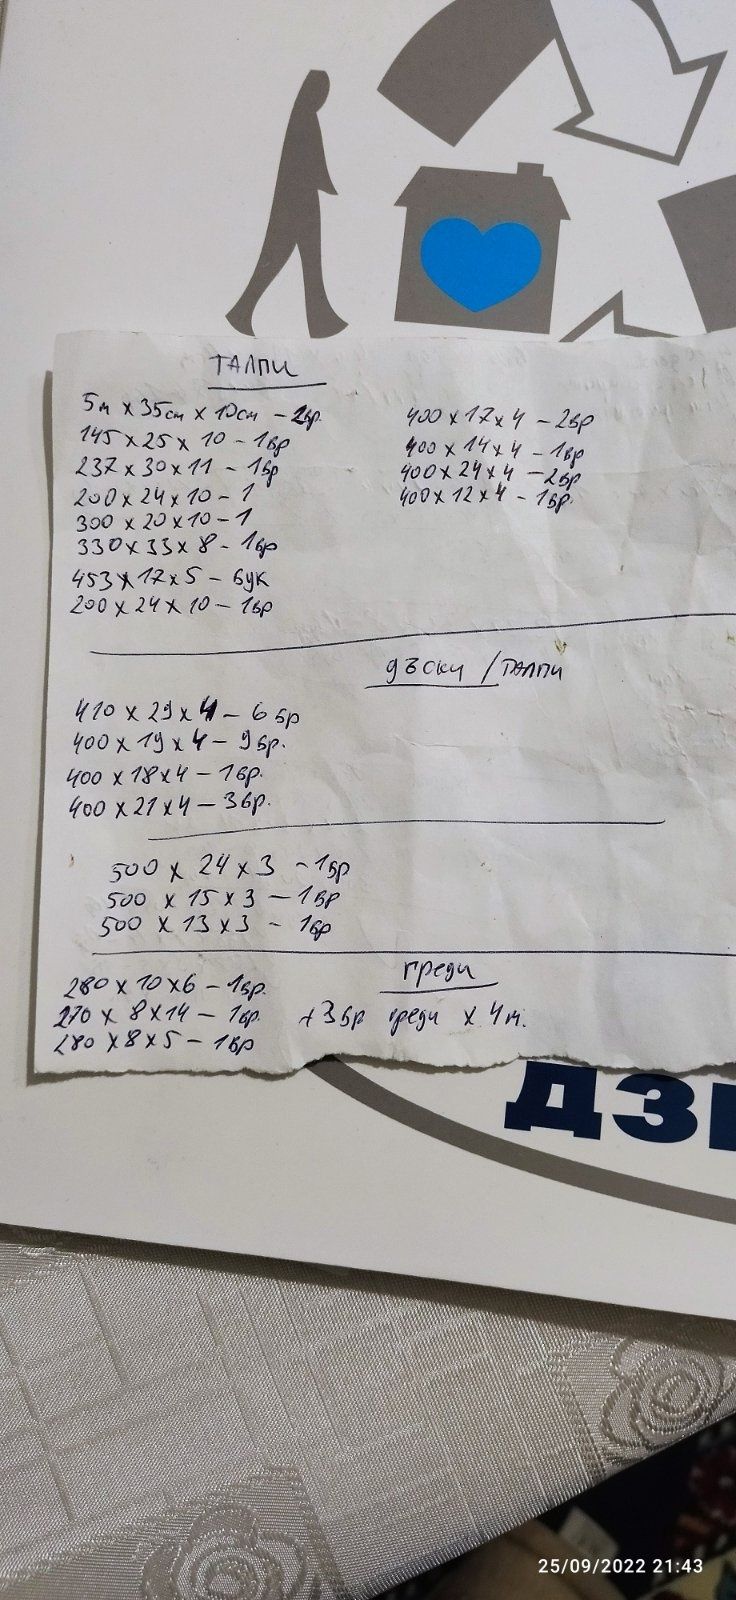 ТАЛПИ
5м x 35см x 10см - 2бр.
145 x 25 x 10 - 1бр
237 x 30 x 11 - 1бр
200 x 24 x 10 - 1
300 x 20 x 10 - 1
330 x 33 x 8 - 1бр
453 x 17 x 5 - бук
200 x 24 x 10 - 1бр
400 x 17 x 4 - 2бр
400 x 14 x 4 - 1бр
400 x 24 x 4 - 2бр
400 x 12 x 4 - 1бр.
дъски / ТАЛПИ
410 x 29 x 4 - 6 бр
400 x 19 x 4 - 9бр.
400 x 18 x 4 - 1бр.
400 x 21 x 4 - 3бр.
500 x 24 x 3 - 1бр
500 x 15 x 3 - 1бр
500 x 13 x 3 - 1бр
греди
280 x 10 x 6 - 1бр.
270 x 8 x 14 - 1бр. +3бр греди x 4м.
280 x 8 x 5 - 1бр
ДЗИ
25/09/2022 21:43